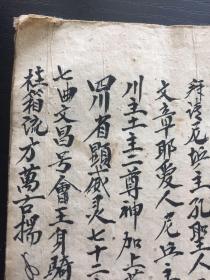 拜请尼丘主孔聖人
文章耶爱人尼丘主
川主土主二尊神加上
四川省顕威灵七十二
七曲文昌号會王身騎
桂箱院方萬古揚